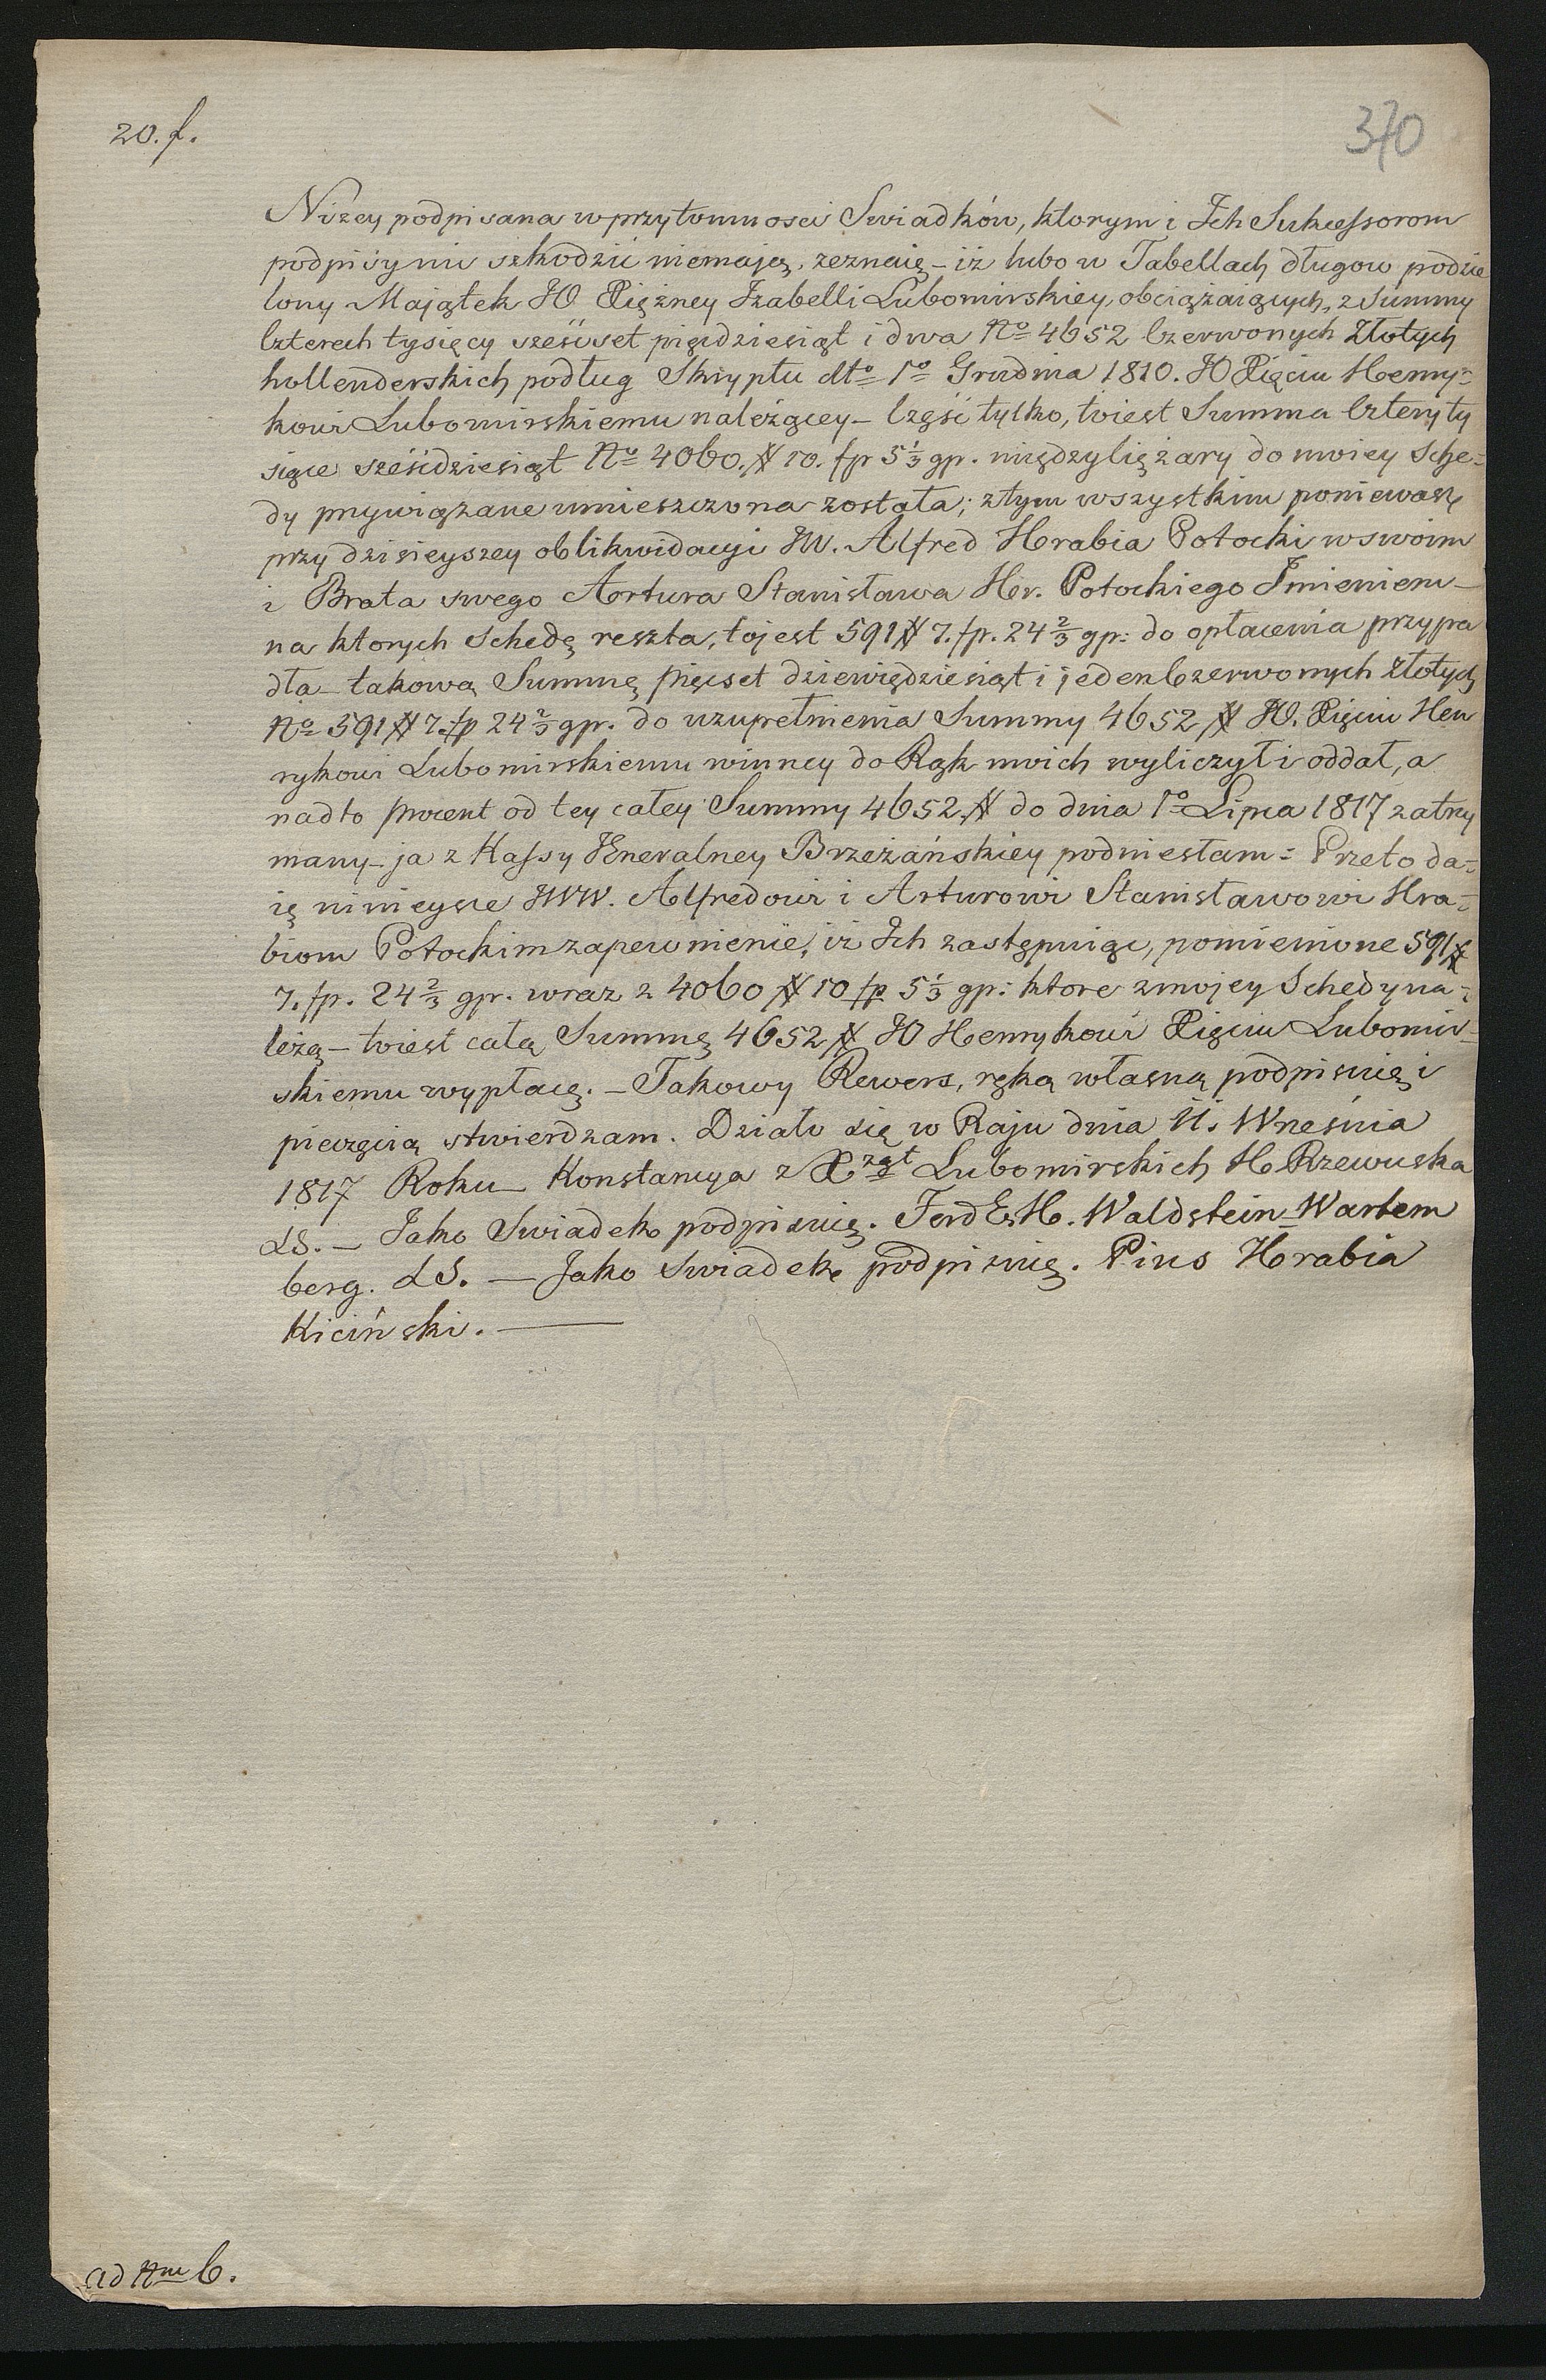 20. f.
370
Niżey podpisana w przytomnosci Swiadków, ktorym i Jch Sukcessorom
podpisy ni szkodzić niemają, zeznaię – iż lubo w Tabellach długow podzie
lony Maiątek JO Xiężney Jzabelli Lubomirskiey, obciążaiących, z Summy
Czterech tysięcy sześćset pięćdziesiąt i dwa No 4652 Czerwonych Złotych
hollenderskich podług Skryptu dto 1o Grudnia 1810. JO Xięciu Henry=
kowi Lubomirskiemu należącey – Część tylko, toiest Summa Cztery ty
siące sześćdziesiąt No 4060. # 10. fp 5 1/3 gp. między Ciężary do moiey Sche=
dy przywiązane umieszczona została; z tym wszystkim ponieważ
przy dzisieyszey oblikwidacyi JW. Alfred Hrabia Potocki w swoim
i Brata swego Artura Stanisława Hr. Potockiego Jmieniem –
na ktorych Schedę reszta, tojest 591 # 7. fp. 24 2/3 gp: do opłacenia przypa
dła – takową Summę pięcset dziewięćdziesiąt i jeden Czerwonych Złotych
No 591 # 7. fp 24 2/3 gp. do uzupełnienia Summy 4652 # JO. Xięciu Hen
rykowi Lubomirskiemu winney do Rąk moich wyliczył i oddał, a
nadto procent od tey całey Summy 4652 # do dnia 1o Lipca 1817 zatrzy
many – ja z Kassy Jeneralney Brzeżańskiéy podniosłam: Przeto da=
ię ninieysze JWW. Alfredowi i Arturowi Stanisławowi Hra=
biom Potockim zapewnienie, iż Jch zastępuiąc, pomienione 591 #
7. fp. 24 2/3 gp. wraz z 4060 # 10 fp 5 1/3 gp: ktore z mojey Schedy na=
leżą – toiest całą Summę 4652 # JO Henrykowi Xięciu Lubomir=
skiemu wypłacę. – Takowy Rewers, ręką własną podpisuię i
pieczęcią stwierdzam. Działo się w Raju dnia 11. Wrzesnia
1817 Roku – Konstancya z Xżąt Lubomirskich H. Rzewuska
LS. – Jako Swiadek podpisuię. Ferd E. H. Waldstein-Wartem
berg. LS. – Jako Swiadek podpisuię. Pius Hrabia
Kiciński. –
ad Num 6.